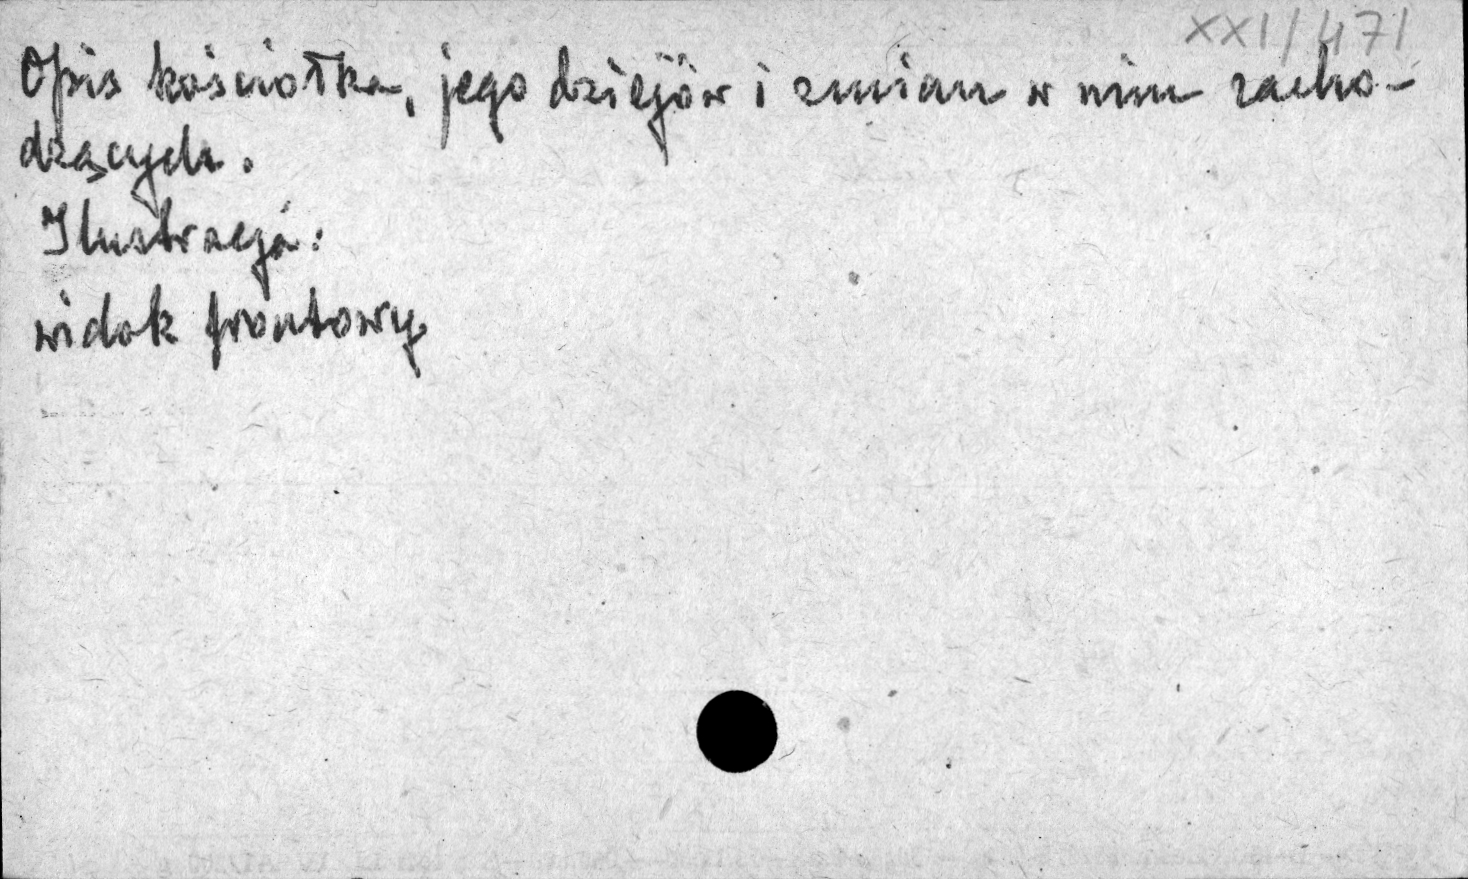 XXI/471
Opis kościołka, jego dziejów i zmian w nim zacho-
dzących.
Ilustracja:
widok frontowy